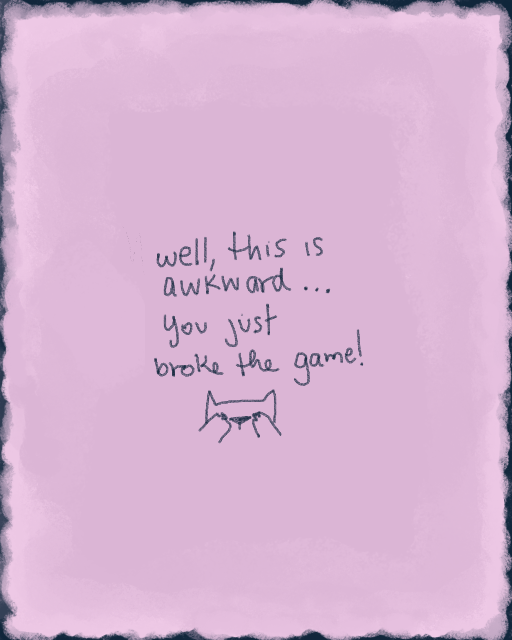 well, this is
awkward...
you just
broke the game!